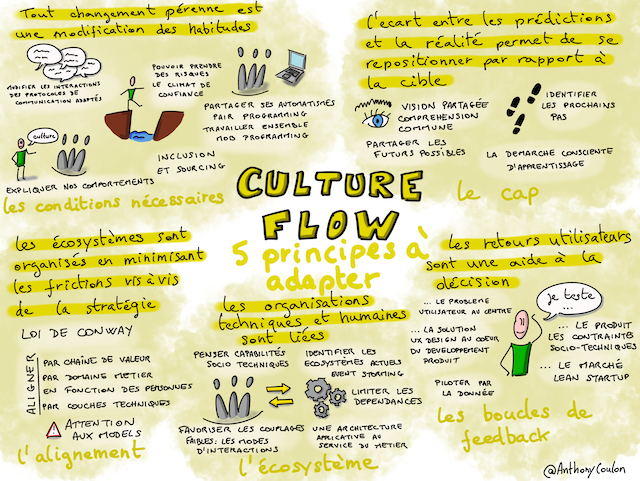 Tout changement pérenne est
une modification des habitudes
MODIFIER LES INTERACTIONS
DES PROTOCOLES DE
COMMUNICATION ADAPTÉS
POUVOIR PRENDRE
DES RISQUES
LE CLIMAT DE
CONFIANCE
PARTAGER SES AUTOMATISMES
PAIR PROGRAMMING
TRAVAILLER ENSEMBLE
MOB PROGRAMMING
culture
INCLUSION
ET SOURCING
EXPLIQUER NOS COMPORTEMENTS
les conditions nécessaires
L'écart entre les prédictions
et la réalité permet de se
repositionner par rapport à
la cible
VISION PARTAGÉE
COMPREHENSION
COMMUNE
IDENTIFIER
LES PROCHAINS
PAS
PARTAGER LES
FUTURS POSSIBLES
LA DEMARCHE CONSCIENTE
D'APPRENTISSAGE
le cap
CULTURE
FLOW
5 principes à
adapter
les écosystèmes sont
organisés en minimisant
les frictions vis à vis
de la stratégie
LOI DE CONWAY
ALIGNER
PAR CHAÎNE DE VALEUR
PAR DOMAINE METIER
EN FONCTION DES PERSONNES
PAR COUCHES TECHNIQUES
ATTENTION
AUX MODELS
l'alignement
les organisations
techniques et humaines
sont liées
PENSER CAPABILITÉS
SOCIO TECHNIQUES
IDENTIFIER LES
ECOSYSTÈMES ACTUELS
EVENT STORMING
LIMITER LES
DEPENDANCES
FAVORISER LES COUPLAGES
FAIBLES: LES MODES
D'INTERACTIONS
UNE ARCHITECTURE
APPLICATIVE AU
SERVICE DU METIER
l'écosystème
les retours utilisateurs
sont une aide à la
décision
... LE PROBLEME
UTILISATEUR AU CENTRE
... LA SOLUTION
UX DESIGN AU COEUR
DU DEVELOPPEMENT
PRODUIT
je teste ...
... LE PRODUIT
LES CONTRAINTES
SOCIO-TECHNIQUES
... LE MARCHÉ
LEAN STARTUP
PILOTER PAR
LA DONNÉE
les boucles de
feedback
@AnthonyCoulon